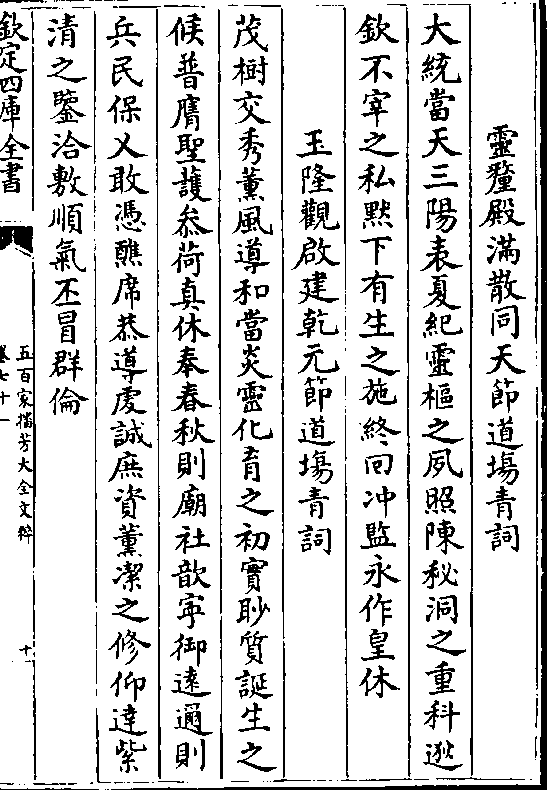 靈釐殿滿散同天節道場青詞
大統當天三陽表夏紀靈樞之夙照陳秘洞之重科逖
欽不宰之私黙下有生之施終回冲監永作皇休
玉隆觀啟建乾元節道塲青詞
茂樹交秀薫風導和當炎靈化育之初實眇質誕生之
候普膺聖䕶叅荷真休奉春秋則廟社歆寜御逺邇則
兵民保乂敢憑醮席恭導䖍誠庶資薫潔之修仰達紫
清之鑒洽敷順氣丕冒群倫
欽定四庫全書
五百家播芳大全文粹
卷七十一
十一